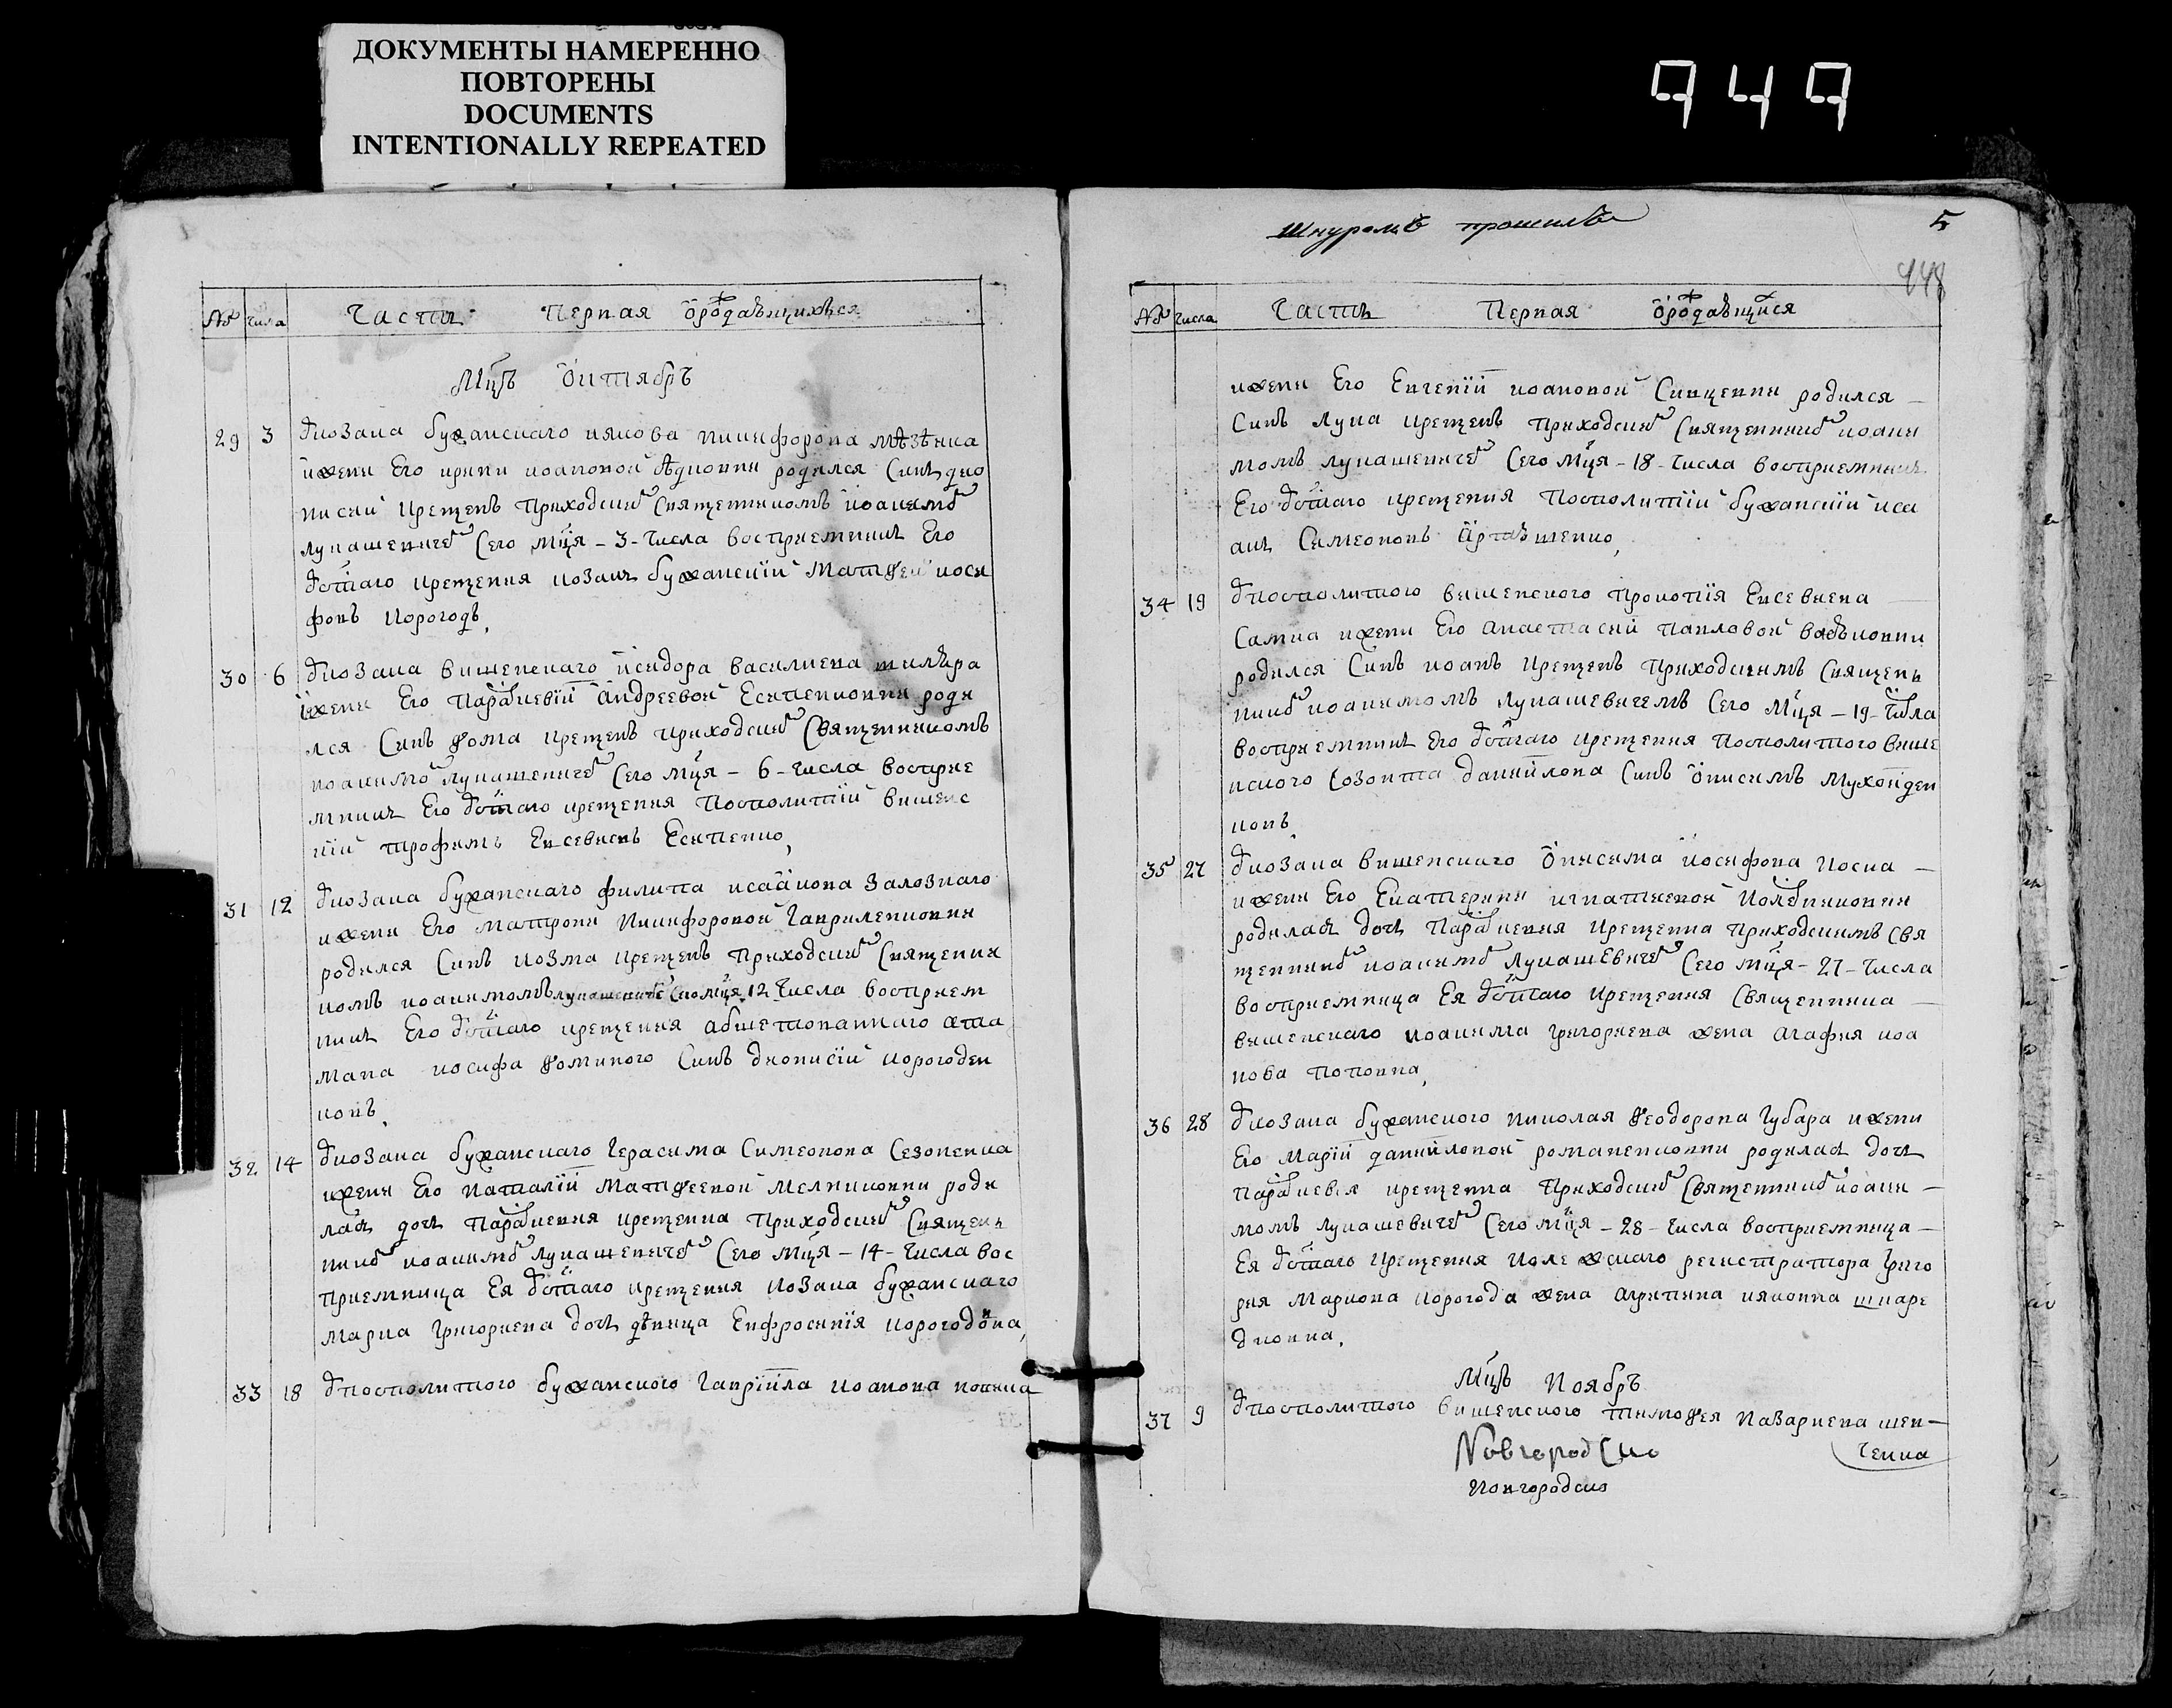 ДОКУМЕНТЫ НАМЕРЕННО
ПОВТОРЕНЫ
DOCUMENTS
INTENTIONALLY REPEATED
949
№ числа Часть Первая ѡ рождаѣщихъся
Мцъ Октябръ
29 3 У козака бужанскаго иякова никифорова мѣзѣнка
и жени Его ирини иоановой Ядковни родился Синъ дио
нисий крещенъ приходским Священикомъ иоаким
лукашевичем Сего мця - 3 - числа восприемник Его
от святаго крещения козакъ бужанский Матѳей иоси
фовъ корогодъ,
30 6 У козака вишенскаго исидора василиева
и жени Его Параскевии Андреевой Есипенковни роди
лся Синъ Ѳома крещенъ приходским Священикомъ
иоаким лукашевичем Сего мця - 6 - числа восприе
мник Его от святаго крещения посполитий вишенс
кий трофимъ Евсевиевъ Есипенко,
31 12 У козака бужанскаго филипа исаакова Залозного
и жени Его матрони Никифоровой Гавриленковни
родился Синъ козма крещенъ Приходским Священи
комъ иоакимомъ лукашевичем Сего мця 12 числа восприем
ник Его от святаго крещения абшетованнаго ата
мана иосифа Ѳоминого Синъ дионисий корогоден
ковъ,
32 14 У козака бужанскаго Герасима Симеонова Сезоненка
и жени Его Наталии Матѳеевой Мелниковни роди
лась дочь Параскевия крещенна Приходским Священ
ник иоаким лукашевичем Сего мця - 14 - числа вос
приемница Ея от святаго крещения козака бужанскаго
марка григориева дочь дѣвица Евфросиния корогодовна,
33 18 У посполитого бужанского Гавриила иоанова
Шнуромъ прошилъ 5
448
№ числа Часть Первая ѡ рождаѣщихся
и жени Его Евгений иоановой Сивценни родился
Синъ лука крещенъ приходским Священник иоаки
момъ лукашевичем Сего мця - 18 - числа восприемник
Его от святаго крещения посполитий бужанский иса
акъ Симеоновъ
34 19 У посполитого вишенского Прокопия Евсевиева
Самка и жени Его анастасий павловой
родился Синъ иоанъ крещенъ Приходскимъ Священ
ник иоакимомъ лукашевичемъ Сего мця - 19 - числа
восприемник Его от святаго крещения посполитого више
нского Созонта данийлова Синъ Онисимъ
ковъ,
35 27 У козака вишенскаго Онисима иосифова Носка
и жени Его Екатерини игнатиевой
родилась дочь Параскевия крещенна приходскимъ Свя
щенник иоаким лукашевичем Сего мця - 27 - числа
восприемница Ея от святаго крещения Священника
вишенскаго иоакима григориева жена агафия иоа
нова поповна,
36 28 У козака бужанского николая Ѳеодорова Губара и жени
Его Марий даниилокой романенковни родилась дочь
Параскевия крещенна Приходским Священник иоаки
момъ лукашевичем Сего мця - 28 - числа восприемница
Ея от святаго крещения колежскаго регистратора григо
рия Маркова корогода жена агрипина ияковна шкаре
дковна,
Мцъ Ноябръ
37 9 У посполитого вишенского тимоѳея назариева шев-
ченка
Новгородско
Новгородско